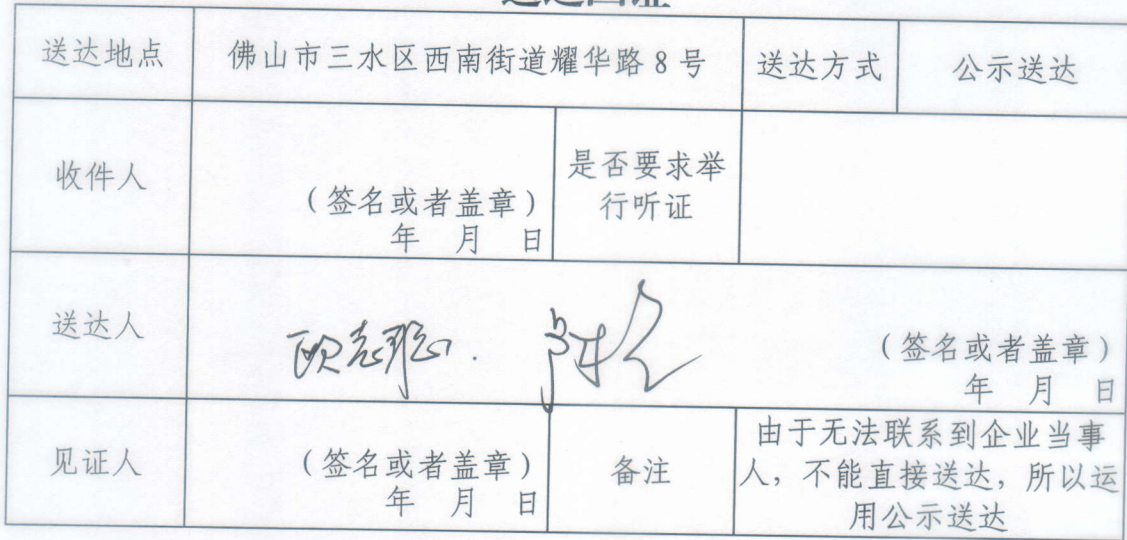 送达地点 佛山市三水区西南街道耀华路8号 送达方式 公示送达
收件人 (签名或者盖章)
年 月 日
是否要求举
行听证
送达人 欧志聪.
(签名或者盖章)
年 月 日
见证人 (签名或者盖章)
年 月 日
备注
由于无法联系到企业当事
人，不能直接送达，所以运
用公示送达